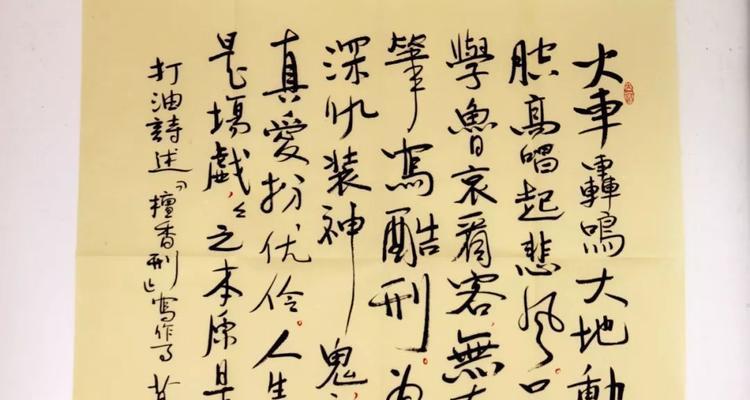 火车轟鳴大地動
腔高唱起悲风口
學魯哀看客無
筆寫酷刑为
深仇装神鬼
真愛扮优伶人生
是場戲々之本原是
打油詩述「檀香刑」寫作了